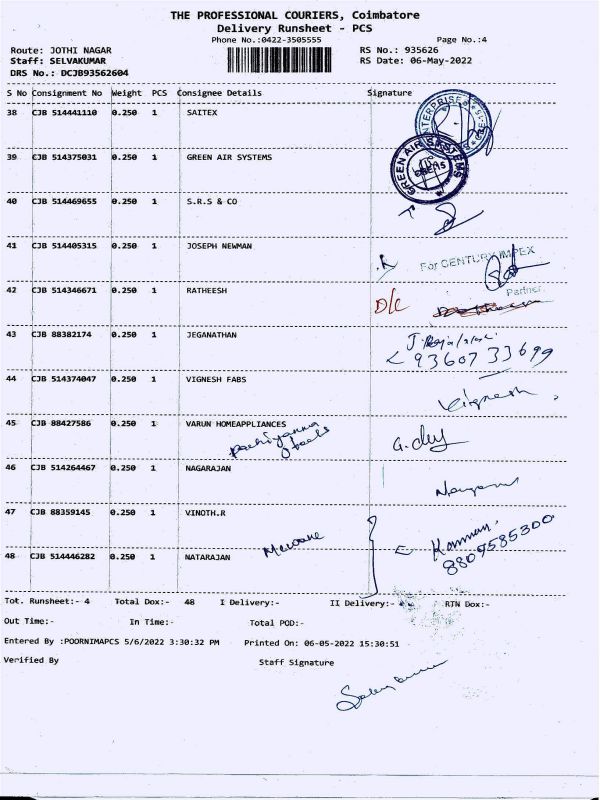 THE PROFESSIONAL COURIERS, Coimbatore
Delivery Runsheet - PCS
Phone No.:0422-3505555 Page No.:4
Route: JOTHI NAGAR RS No.: 935626
Staff: SELVAKUMAR RS Date: 06-May-2022
DRS No.: DCJB93562604
S No Consignment No Weight PCS Consignee Details Signature
38 CJB 514441110 0.250 1 SAITEX
ENTERPRISES
39 CJB 514375031 0.250 1 GREEN AIR SYSTEMS
GREEN AIR SYSTEMS
40 CJB 514469655 0.250 1 S.R.S & CO
41 CJB 514405315 0.250 1 JOSEPH NEWMAN
For CENTURY IMPEX
42 CJB 514346671 0.250 1 RATHEESH
Partner
D/c
43 CJB 88382174 0.250 1 JEGANATHAN
93607 33699
44 CJB 514374047 0.250 1 VIGNESH FABS
Vignesh
45 CJB 88427586 0.250 1 VARUN HOMEAPPLIANCES
46 CJB 514264467 0.250 1 NAGARAJAN
47 CJB 88359145 0.250 1 VINOTH.R
Kannan
8809585300
48 CJB 514446282 0.250 1 NATARAJAN
Tot. Runsheet:- 4 Total Dox:- 48 I Delivery:- II Delivery:- RTN Dox:-
Out Time:- In Time:- Total POD:-
Entered By :POORNIMAPCS 5/6/2022 3:30:32 PM Printed On: 06-05-2022 15:30:51
Verified By Staff Signature